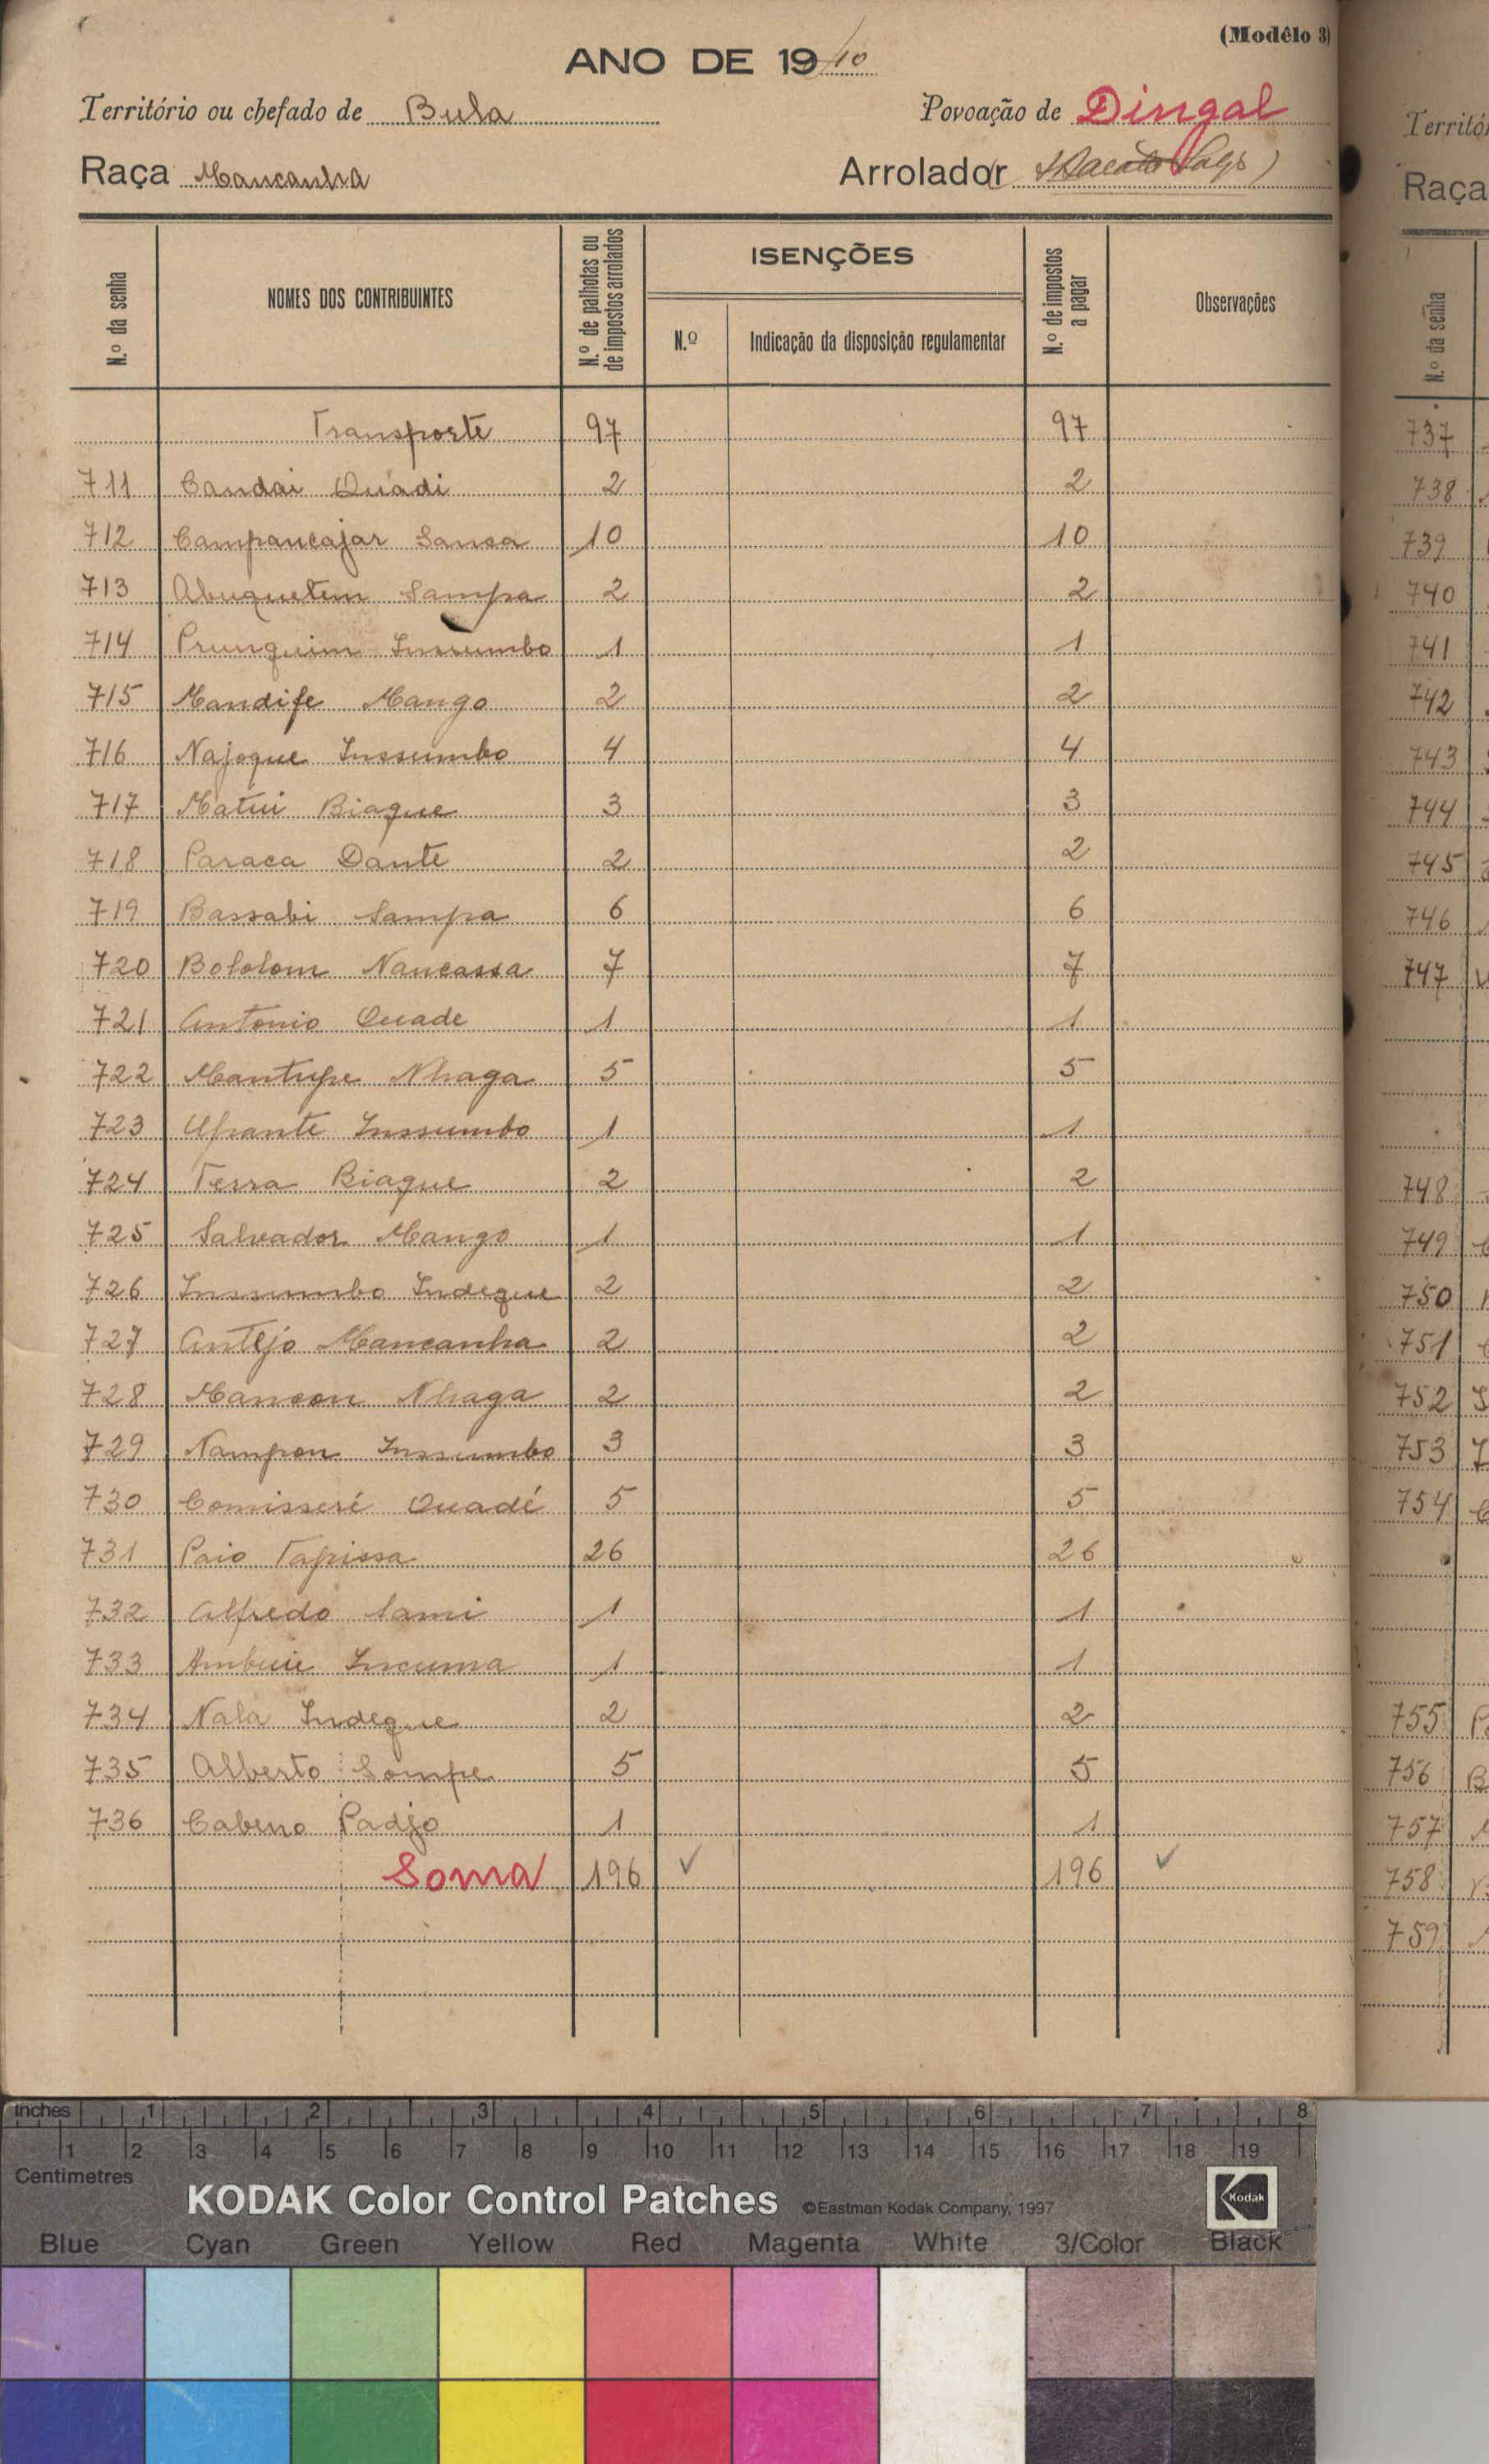 (Modêlo 3)
ANO DE 19
Território ou chefado de Bula Povoação de Dingal
Raça Mancanha Arrolador
N.º da senha NOMES DOS CONTRIBUINTES N.º de palhotas ou de impostos arrolados ISENÇÕES N.º Indicação da disposição regulamentar N.º de impostos a pagar Observações
Transporte 97 97
711 Candai Quadi 2 2
712 Campancajar Sanca 10 10
713 Abuquetem Sampa 2 2
714 Prunquim Inssumbo 1 1
715 Mandife Mango 2 2
716 Najoque Inssumbo 4 4
717 Matui Biaque 3 3
718 Paraca Dante 2 2
719 Bassabi Sampa 6 6
720 Bololom Nancassa 7 7
721 Antonio Quade 1 1
722 Mantupe Nhaga 5 5
723 Ufrante Inssumbo 1 1
724 Terra Biaque 2 2
725 Salvador Mango 1 1
726 Inssumbo Indeque 2 2
727 Antejo Mancanha 2 2
728 Mancon Nhaga 2 2
729 Nampon Inssumbo 3 3
730 Comisseré Quadé 5 5
731 Paio Tapissa 26 26
732 Alfredo Sami 1 1
733 Ambuie Incuma 1 1
734 Nala Indeque 2 2
735 Alberto Sompe 5 5
736 Cabeno Padjo 1 1
Soma 196 ✓ 196 ✓
Territó
Raça
N.º da senha
737
738
739
740
741
742
743
744
745
746
747
748
749
750
751
752
753
754
755
756
757
758
759
inches 1 2 3 4 5 6 7 8
1 2 3 4 5 6 7 8 9 10 11 12 13 14 15 16 17 18 19
Centimetres
KODAK Color Control Patches ©Eastman Kodak Company, 1997 Kodak
Blue Cyan Green Yellow Red Magenta White 3/Color Black